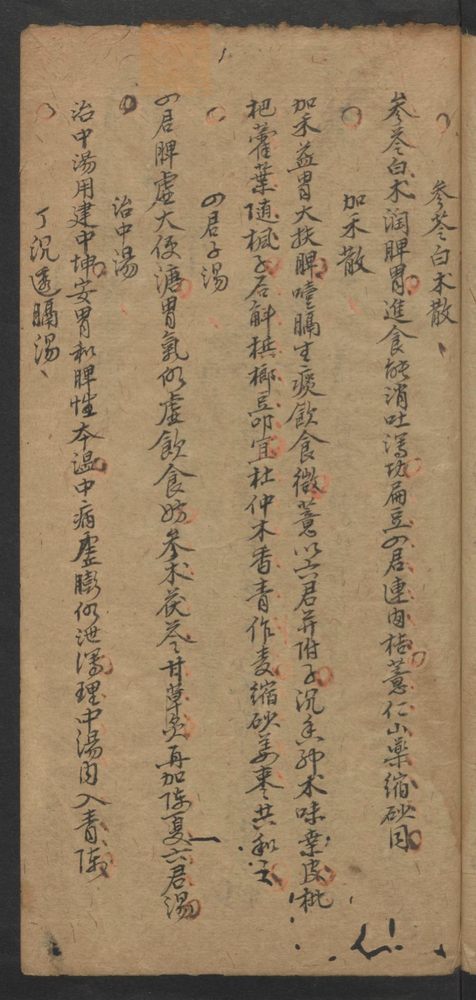 参苓白朮散
参苓白朮润脾胃進食能消吐瀉功扁豆四君連肉桔薏仁山藥缩砂同
加禾散
加禾益胃大扶脾噎膈生痰飲食微薏以六君并附子沉香神朮味桑皮枇
杷藿葉随楓子石斛檳榔豆叩宜杜仲木香青作麦缩砂姜枣共和之
四君子湯
四君脾虚大便溏胃氣仍虚飲食妨参朮茯苓甘草灸再加陈夏六君湯
治中湯
治中湯用建中坤安胃和脾性本温中病虚膨仍泄瀉理中湯内入青陈
丁沉透膈湯